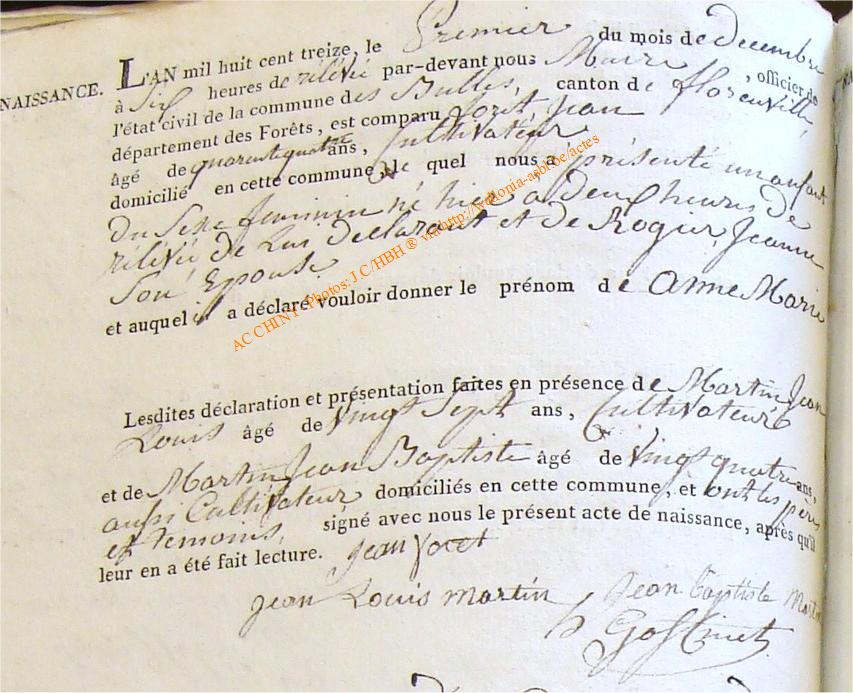 NAISSANCE. L'AN mil huit cent treize, le Premier du mois de decembre
à Six heures de rélévé par-devant nous Maire, officier de
l'état civil de la commune des Bulles, canton de florenville,
département des Forêts, est comparu foret, Jean
âgé de quarantequatre ans, Cultivateur
domicilié en cette commune, le quel nous a présenté un enfant
du Sexe feminin né hier a deux heures de
rélévée de Lui déclarant et de Rogier, Jeanne
Son Epouse
et auquel il a déclaré vouloir donner le prénom de anne Marie
AC CHINY - Photos: J.C/HBH ® via http://wallonia-asbl.be/actes
Lesdites déclaration et présentation faites en présence de Martin Jean
Louis âgé de vingt Sept ans, Cultivateur
et de Martin Jean Baptiste âgé de vingt quatre ans,
aussi Cultivateur domiciliés en cette commune, et ont les pere
et temoins, signé avec nous le présent acte de naissance, après qu'il
leur en a été fait lecture. Jean foret
jean Louis martin Jean Baptiste Martin